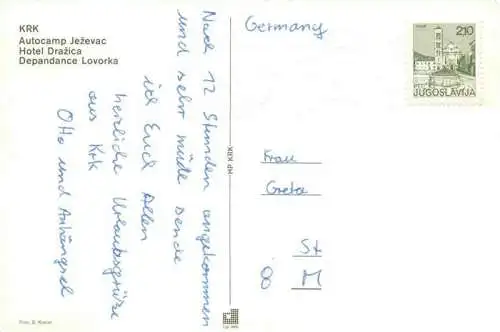 KRK
Autocamp Ježevac
Hotel Dražica
Depandance Lovorka
Nach 12 Stunden angekommen
und sehr müde sende
ich Euch Allen
herzliche Urlaubsgrüße
aus Krk
Otto und Anhängsel
HP KRK
Germany
2,10
JUGOSLAVIJA
Frau
Greta
St
8 M